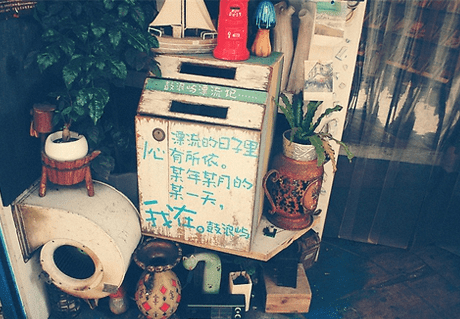 鼓浪屿漂流记......
漂流的日子里
心有所依。
某年某月的
某一天,
我在。鼓浪屿